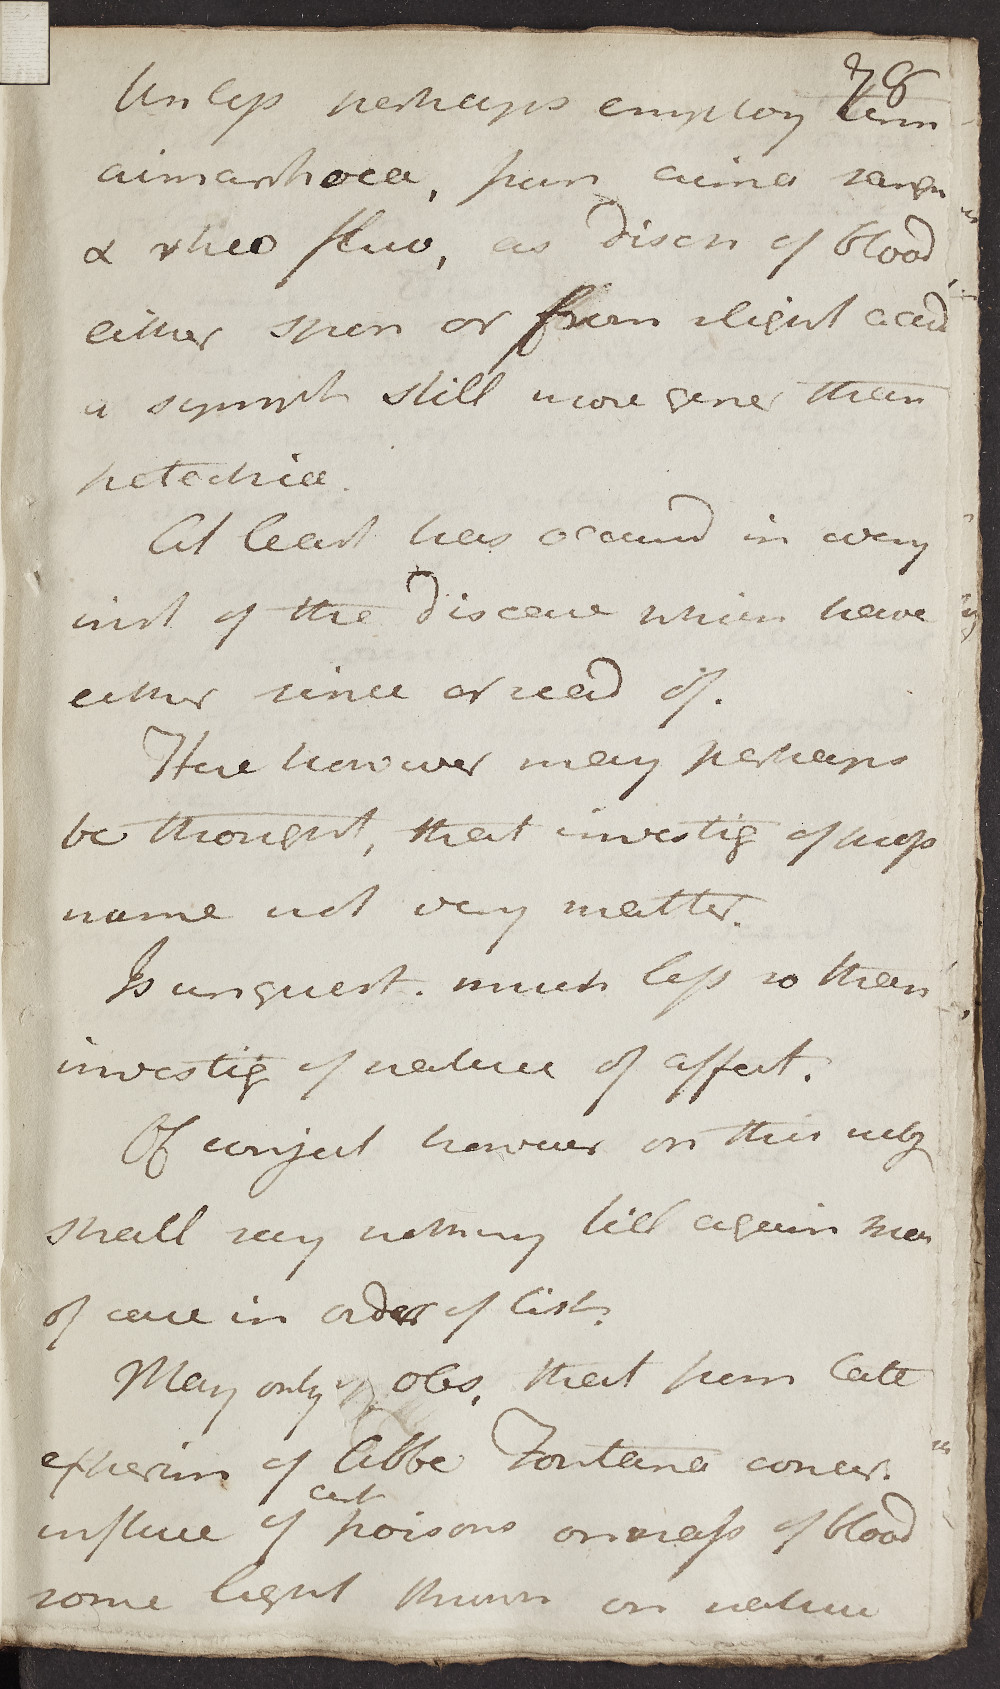 78
Unless perhaps employ term
aimarrhoea, from aima sangu
& rheo fluo, as disch of blood
either spon or from slight accid
a sympt still more gener than
petechiae.
At least has occurred in every
inst of the disease which have
either since or read of.
Here however may perhaps
be thought, that investig of
name not very matter.
Is unquest. much less so than
investig of nature of affect.
Of conject however on this subj
shall say nothing till again
of case in order of list.
May only obs, that from late
experim of Abbe Fontana concer.
influe of cert poisons on mass of blood
some light thrown on nature